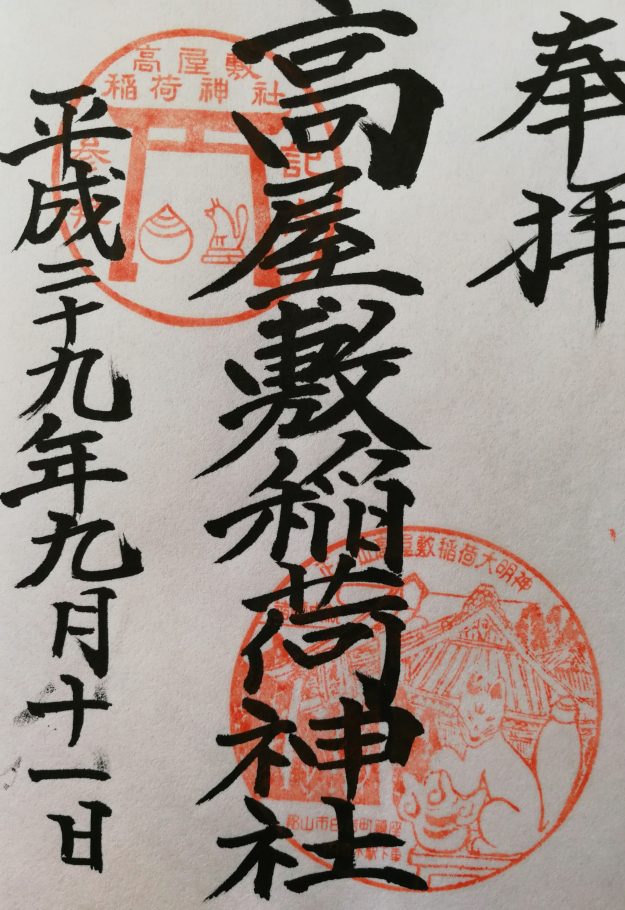 奉拝
高屋敷稲荷神社
平成二十九年九月十一日
高屋敷
稲荷神社
屋敷稲荷大明神